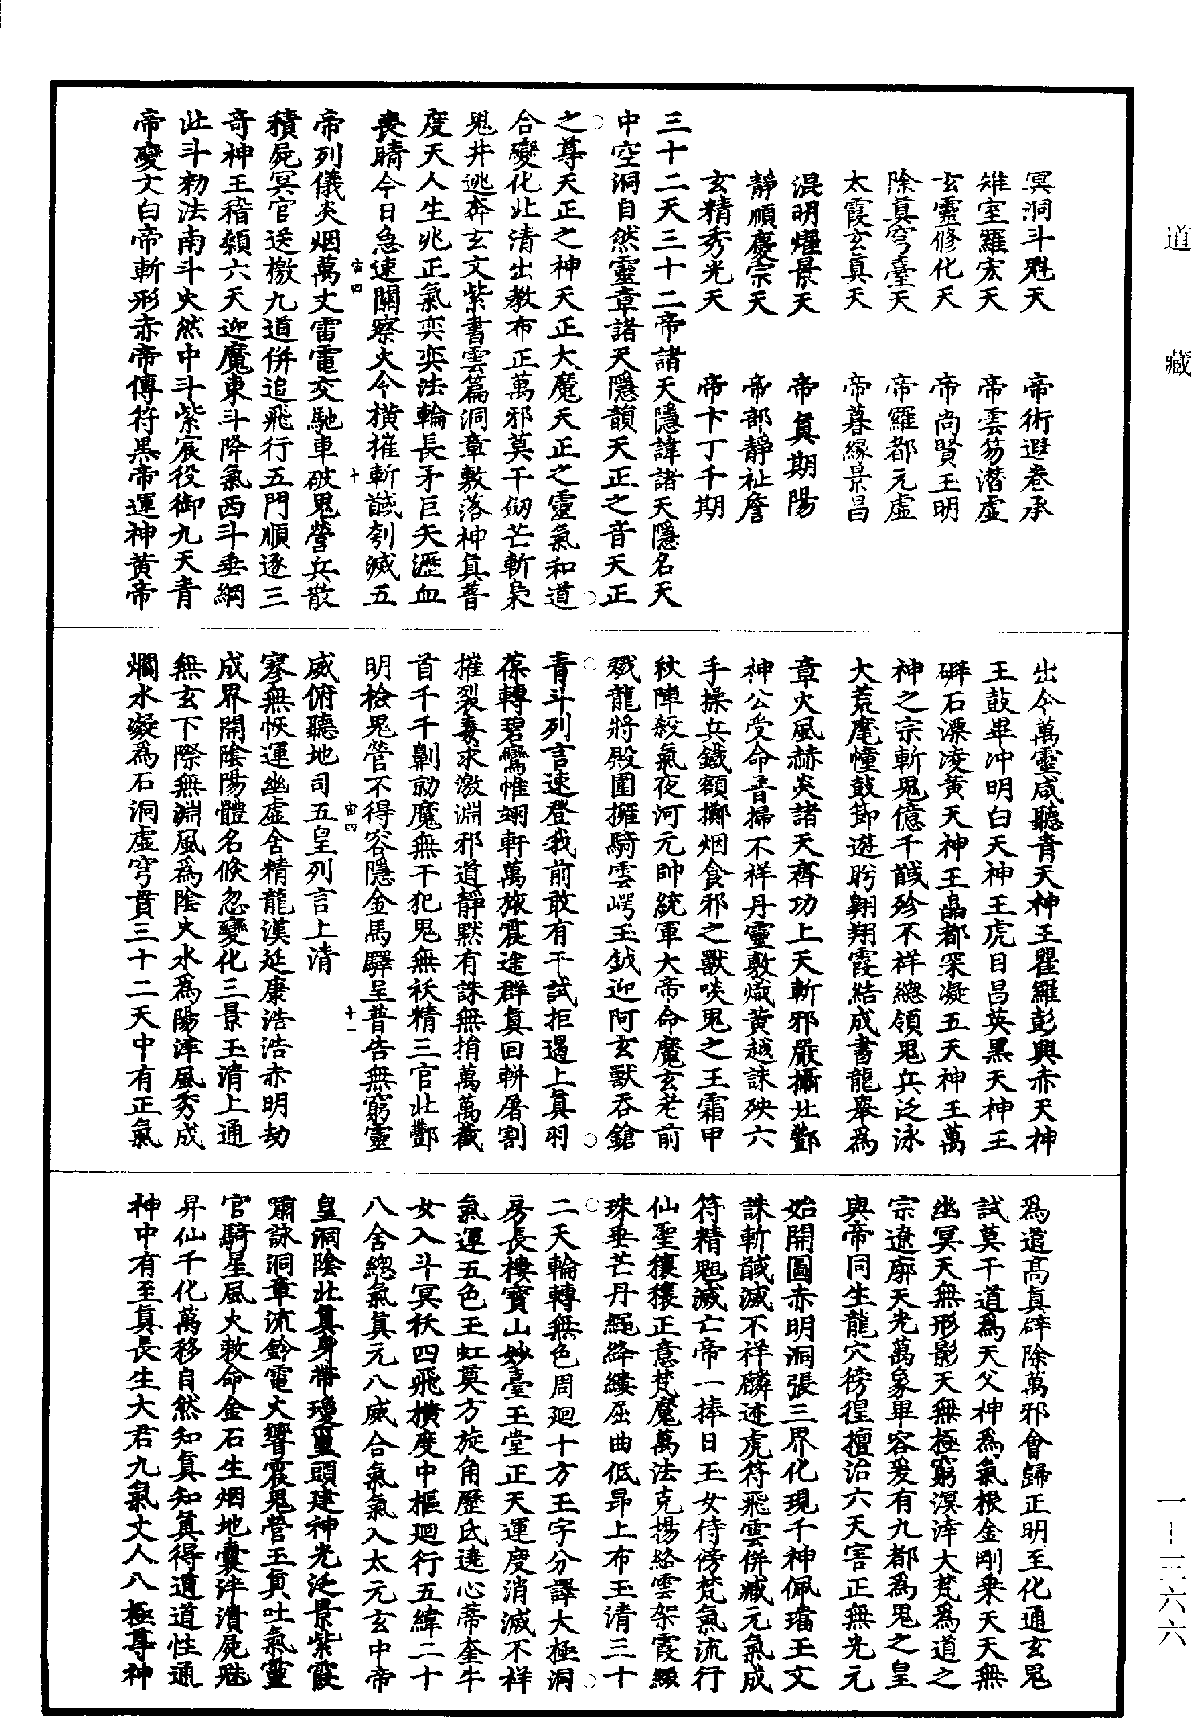 道藏
冥洞斗魁天　帝術遐卷承
雉室羅宏天　帝雲笏潛虛
玄靈修化天　帝尚賢玉明
除真穹臺天　帝羅都元虛
太霞玄真天　帝暮緣景昌
混明燿景天　帝真期陽
靜順慶宗天　帝部靜祉詹
玄精秀光天　帝卞丁千期
三十二天三十二帝諸天隱諱諸天隱名天
中空洞自然靈章諸天隱韻天正之音天正
之尊天正之神天正大魔天正之靈氣和道
合變化北清出教布正萬邪莫干劒芒斬梟
鬼井逃奔玄文紫書雲篇洞章敷落神真普
度天人生兆正氣奕奕法輪長矛巨矢瀝血
喪睛今日急速關察火令橫摧斬馘刳滅五
宙四　十
帝列儀炎烟萬丈雷電交馳車破鬼營兵散
積屍冥官送檄九道併追飛行五門順逐三
奇神王稽顙六天迎魔東斗降氣西斗垂綱
北斗勑法南斗火然中斗紫宸役御九天青
帝變文白帝斬形赤帝傳符黑帝運神黃帝
出令萬靈咸聽青天神王瞿羅彭輿赤天神
王鼓畢冲明白天神王虎目昌英黑天神王
礔石漂凌黃天神王矗都罙凝五天神王萬
神之宗斬鬼億千馘殄不祥總領鬼兵泛泳
大荒麾幢鼓節遊盻翱翔霞結成書龍舉為
章火風赫炎諸天齊功上天斬邪嚴攝北酆
神公受命普掃不祥丹靈敷熾黃越誅殃六
手操兵鐵額擲烟食邪之獸啖鬼之王霜甲
秋陣殺氣夜河元帥統軍大帝命魔玄老前
殲龍將殿圍擁騎雲崿玉鉞迎阿玄獸吞鎗
青斗列言速登我前敢有干試拒遏上真羽
葆轉碧鸞惟翊軒萬旅震途群真回輧屠割
摧裂毒求激淵邪道靜黙有誅無捎萬萬截
首千千剿勍魔無干犯鬼無祅精三官北酆
明檢鬼營不得容隱金馬驛呈普告無窮靈
宙四　十一
威俯聽地司五皇列言上清
寥無恢運幽虛含精龍漢延康浩浩赤明劫
成界開陰陽體名倏忽變化三景玉清上通
無玄下際無淵風為陰火水為陽滓風秀成
爛水凝為石洞虛穹貫三十二天中有正氣
為道高真辟除萬邪會歸正明玉化通玄鬼
試莫干道為天父神為氣根金剛乘天天無
幽冥天無形影天無極窮溟涬大梵為道之
宗遼廓天光萬象畢容爰有九都為鬼之皇
與帝同生龍穴徬徨擅治六天害正無光元
始開圖赤明洞張三界化現千神佩璫玉文
誅斬馘滅不祥麟迹虎符飛雲併臧元氣成
符精魍滅亡帝一捧日玉女侍傍梵氣流行
仙聖攘攘正意梵魔萬法克揚絡雲架霞纈
珠垂芒丹繩絳縷屈曲低昂上布玉清三十
二天輪轉無色周迴十方玉字分譯大極洞
房長樓寶山妙臺玉堂正天運度消滅不祥
氣運五色玉虹奠方旋角歷氐遶心蒂奎牛
女入斗冥袄四飛橫度中樞迴行五緯二十
八舍總氣真元八威合氣氣入太元玄中帝
皇洞陰北真身帶瓊璽頭建神光泛景紫霞
嘯詠洞章流鈴電火響震鬼營玉真吐氣靈
官騎星風火敕命金石生烟地囊泮潰屍魅
昇仙千化萬移自然知真知真得道道性通
神中有至真長生大君九氣丈人八極尊神
一—三六六